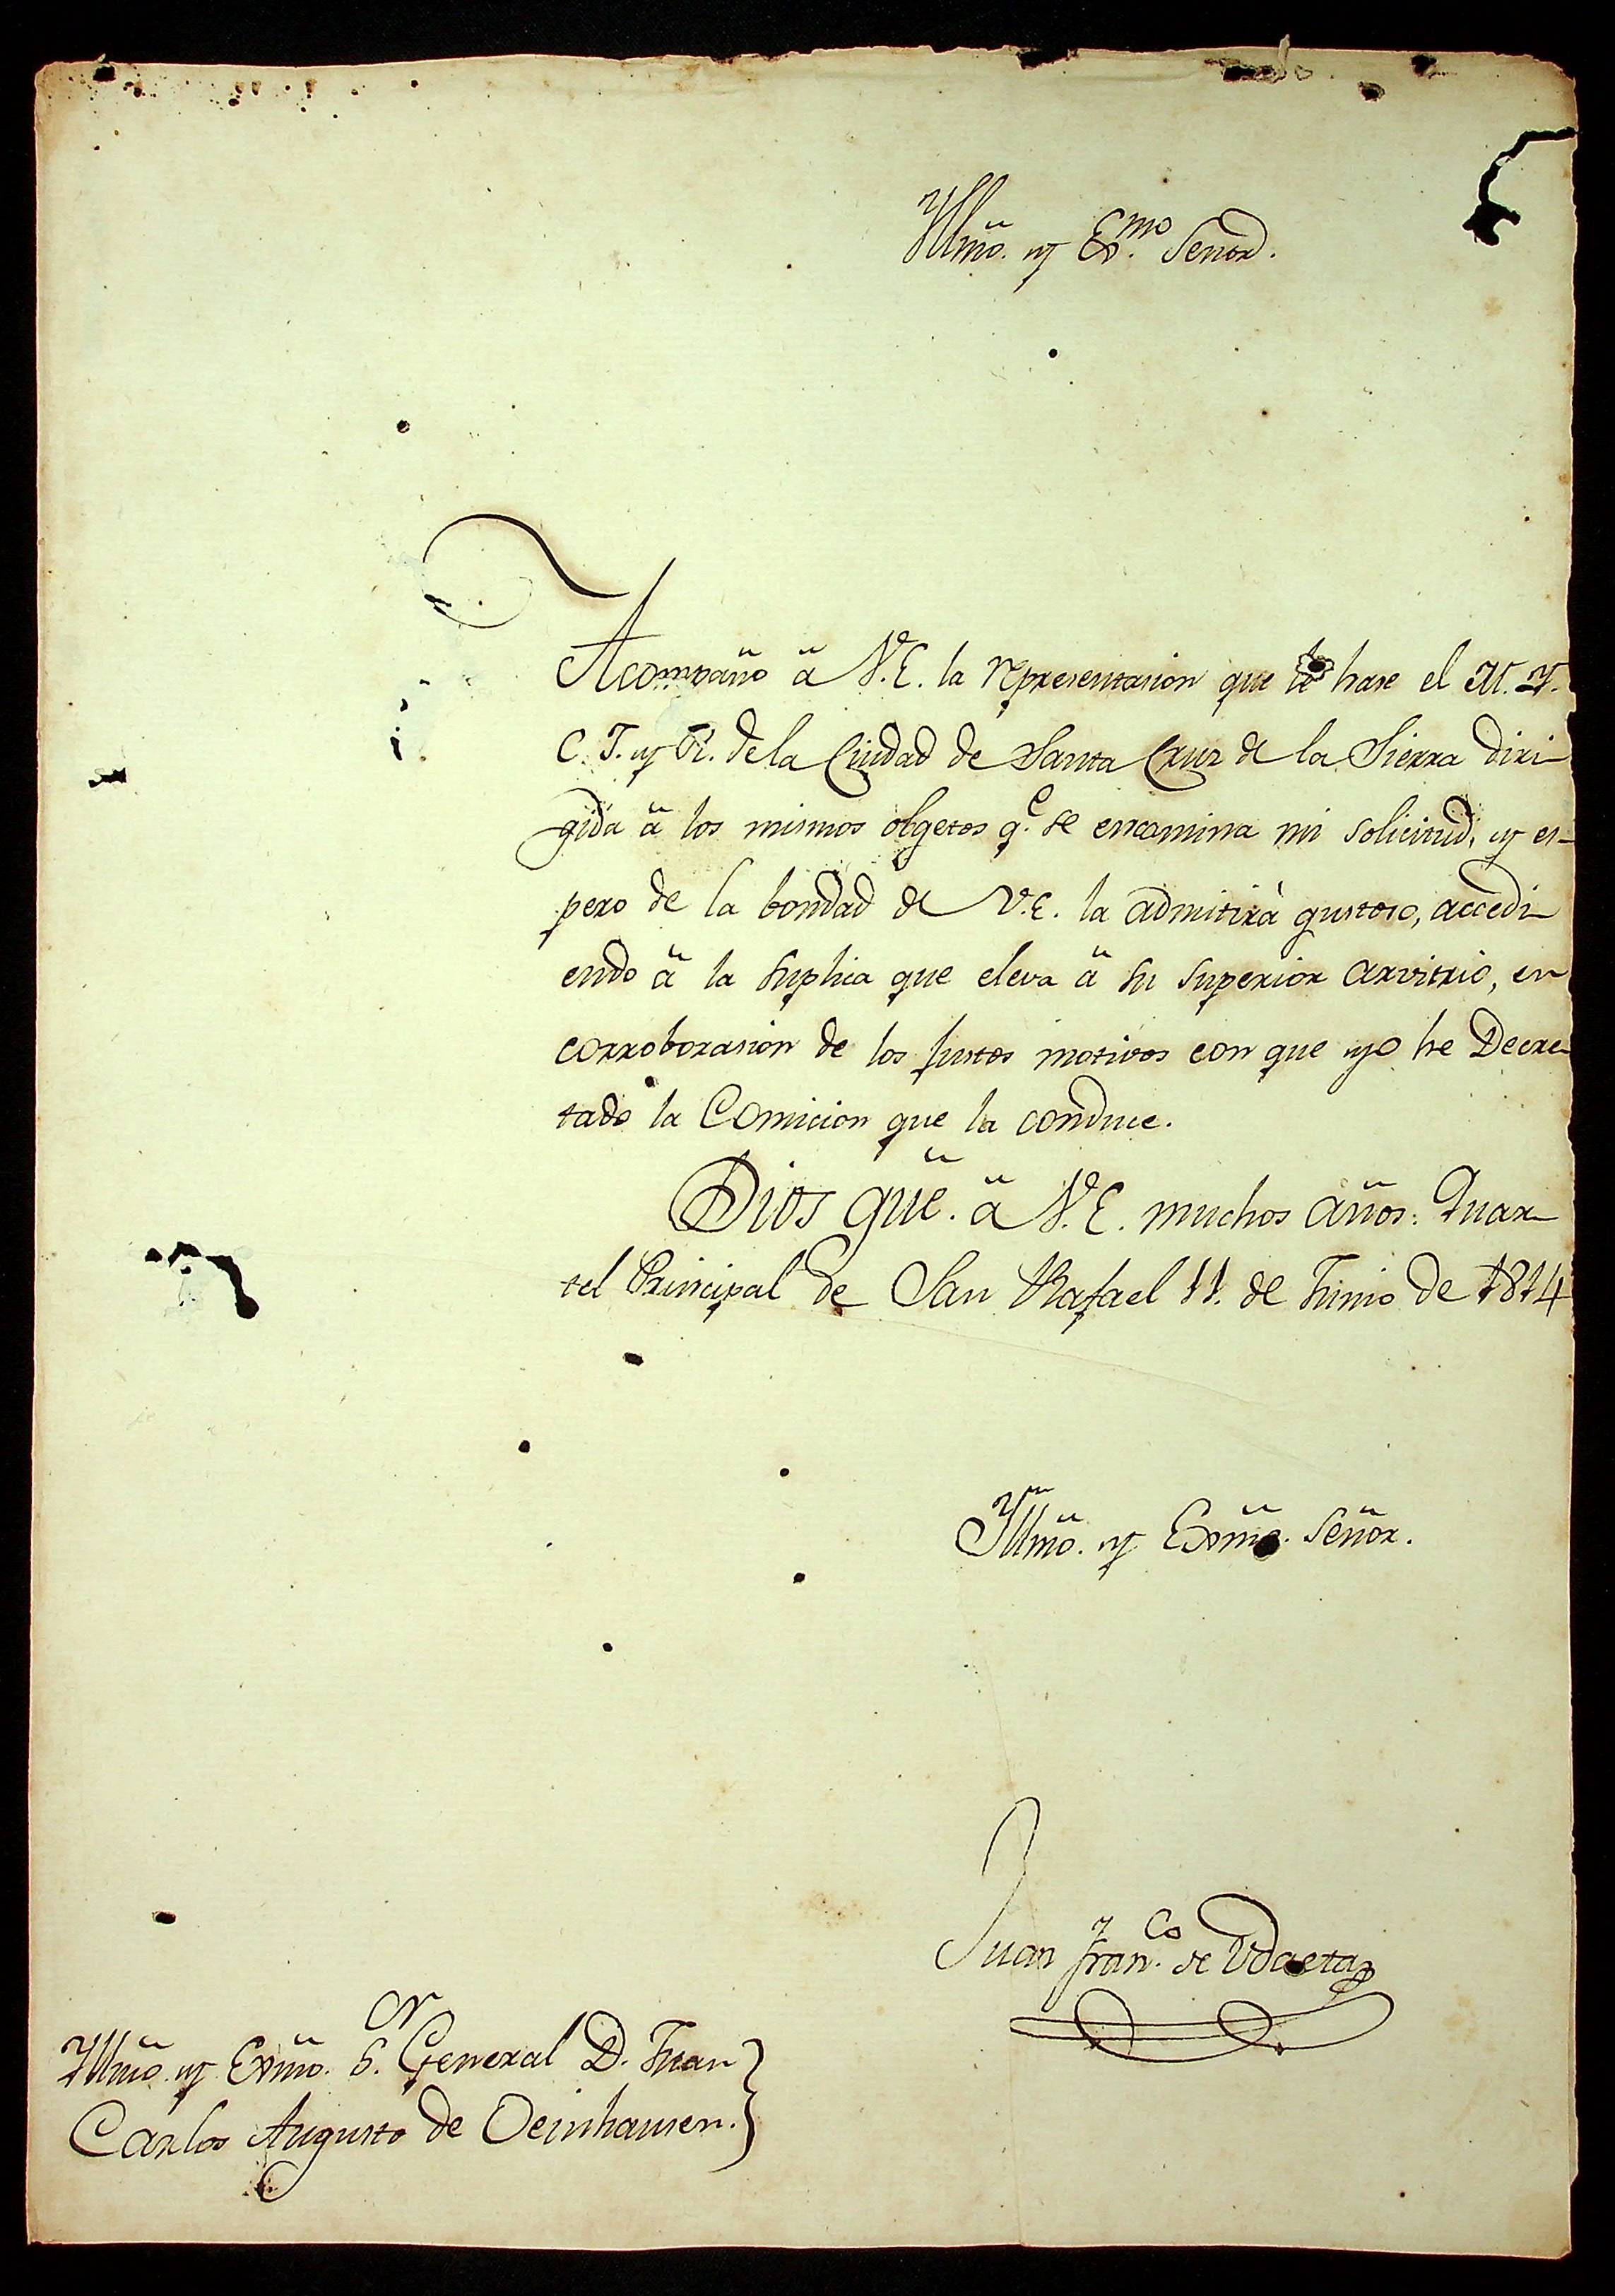 Yllm̃o. y Ex.mo Señor.
Acompaño ã V.E. la representasion que le hase el M. Y.
C. J. y R. de la Ciudad de Santa Cruz de la Sierra diri-
gida ã los mismos obgetos q.e se encamina mi solicitud, y es-
pero de la bondad de V.E. la admitirà gustoso, accedi-
endo ã la suplica que eleva ã su superior arvitrio, en
corroborasion de los justos motivos con que yo he Decre-
tado la Comicion que la conduce.
Dios gũe. ã V.E. muchos años: Quar-
tel Principal de San Rafael 11. de Junio de 1814
Yllm̃o. y Exm̃o. Señor.
Juan Fran.co de Udaeta
Yllm̃o. y Exm̃o. S.or General D. Juan
Carlos Augusto de Oeinhausen.